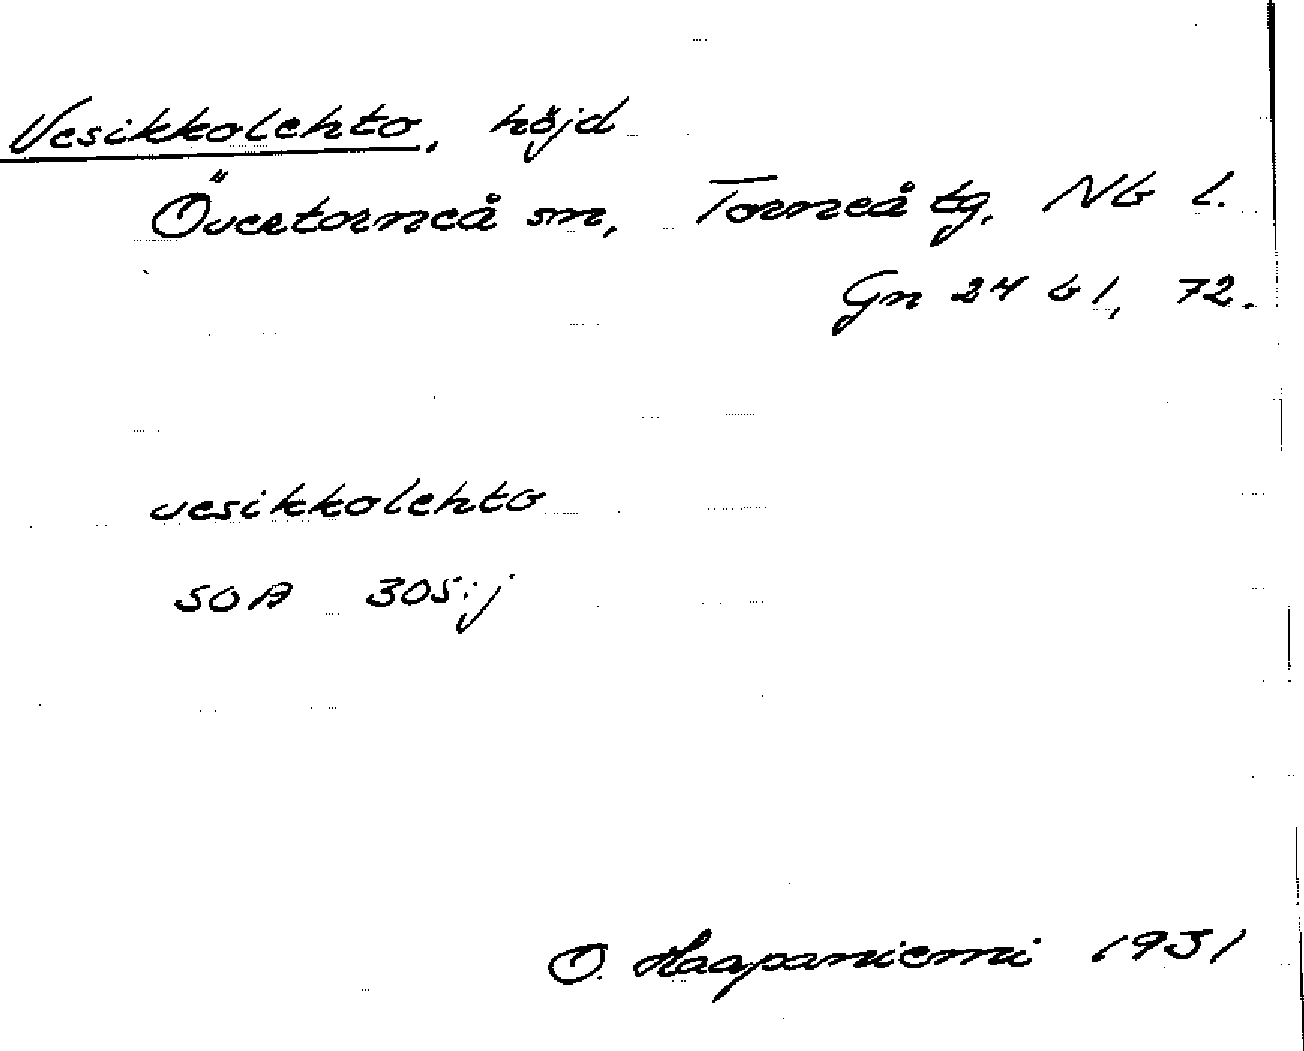 Vesikkolehto, höjd
Övertorneå sn, Torneå tg. Nb l.
Gn 24 bl, 72.
vesikkolehto
SOA 305:j
O. Haapaniemi 1931